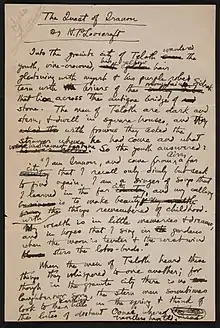 The Quest of Iranon
By H. P. Lovecraft
Into the granite city of Teloth wandered
the youth, vine-crowned, his yellow hair
glistening with myrrh & his purple robe
torn with briers of the mountain
that lies across the antique bridge of
stone. The men of Teloth are dark and
stern, & dwell in square houses, and
with frowns they asked the
stranger whence he had come and what
So the youth answered:
"I am Iranon, and come from
city that I recall only dimly but seek
to find again. I am a singer of songs that
I learned in the far city, and my calling
is to make beauty
with the things remembered of childhood.
My wealth is in little memories & dreams,
and in hopes that I sing in gardens
when the moon is tender & the west wind
stirs the lotos-buds."
When the men of Teloth heard these
things they whispered to one another; for
though in the granite city there is no
laughter the stern men sometimes
look to the hills in the spring & think of
the lutes of distant Oonai
travellers